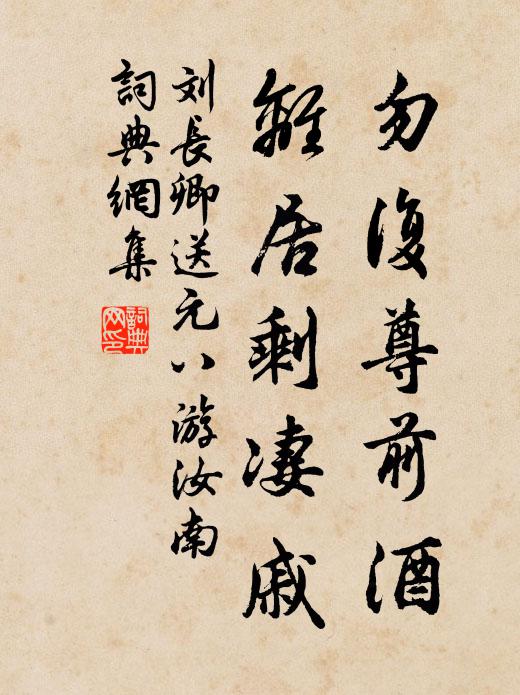 勿復尊前酒
離居剩凄戚
刘長卿送元八游汝南
詞典網集
詞典网印